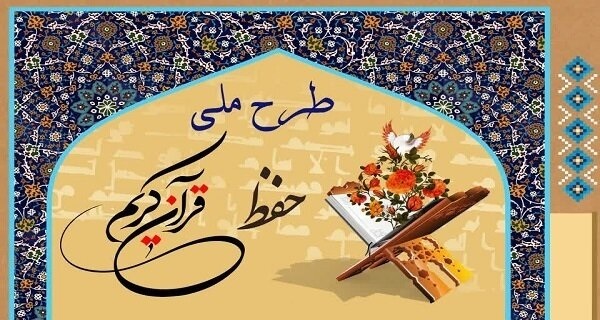 طرح ملی
حفظ
قرآن کریم